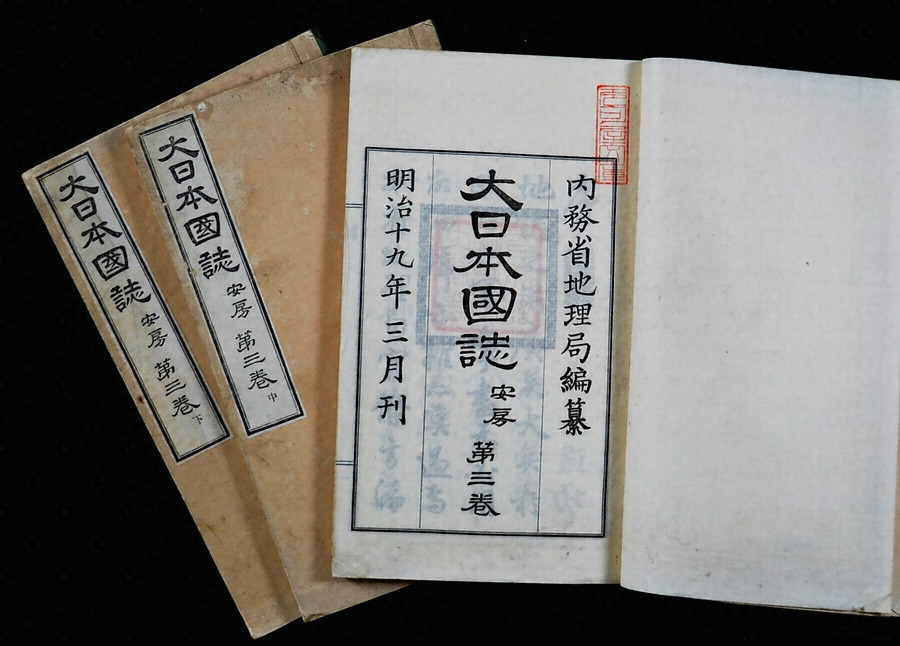 内務省地理局編纂
大日本國誌 安房 第三卷
明治十九年三月刊
大日本國誌 安房 第三卷 中
大日本國誌 安房 第三卷 下